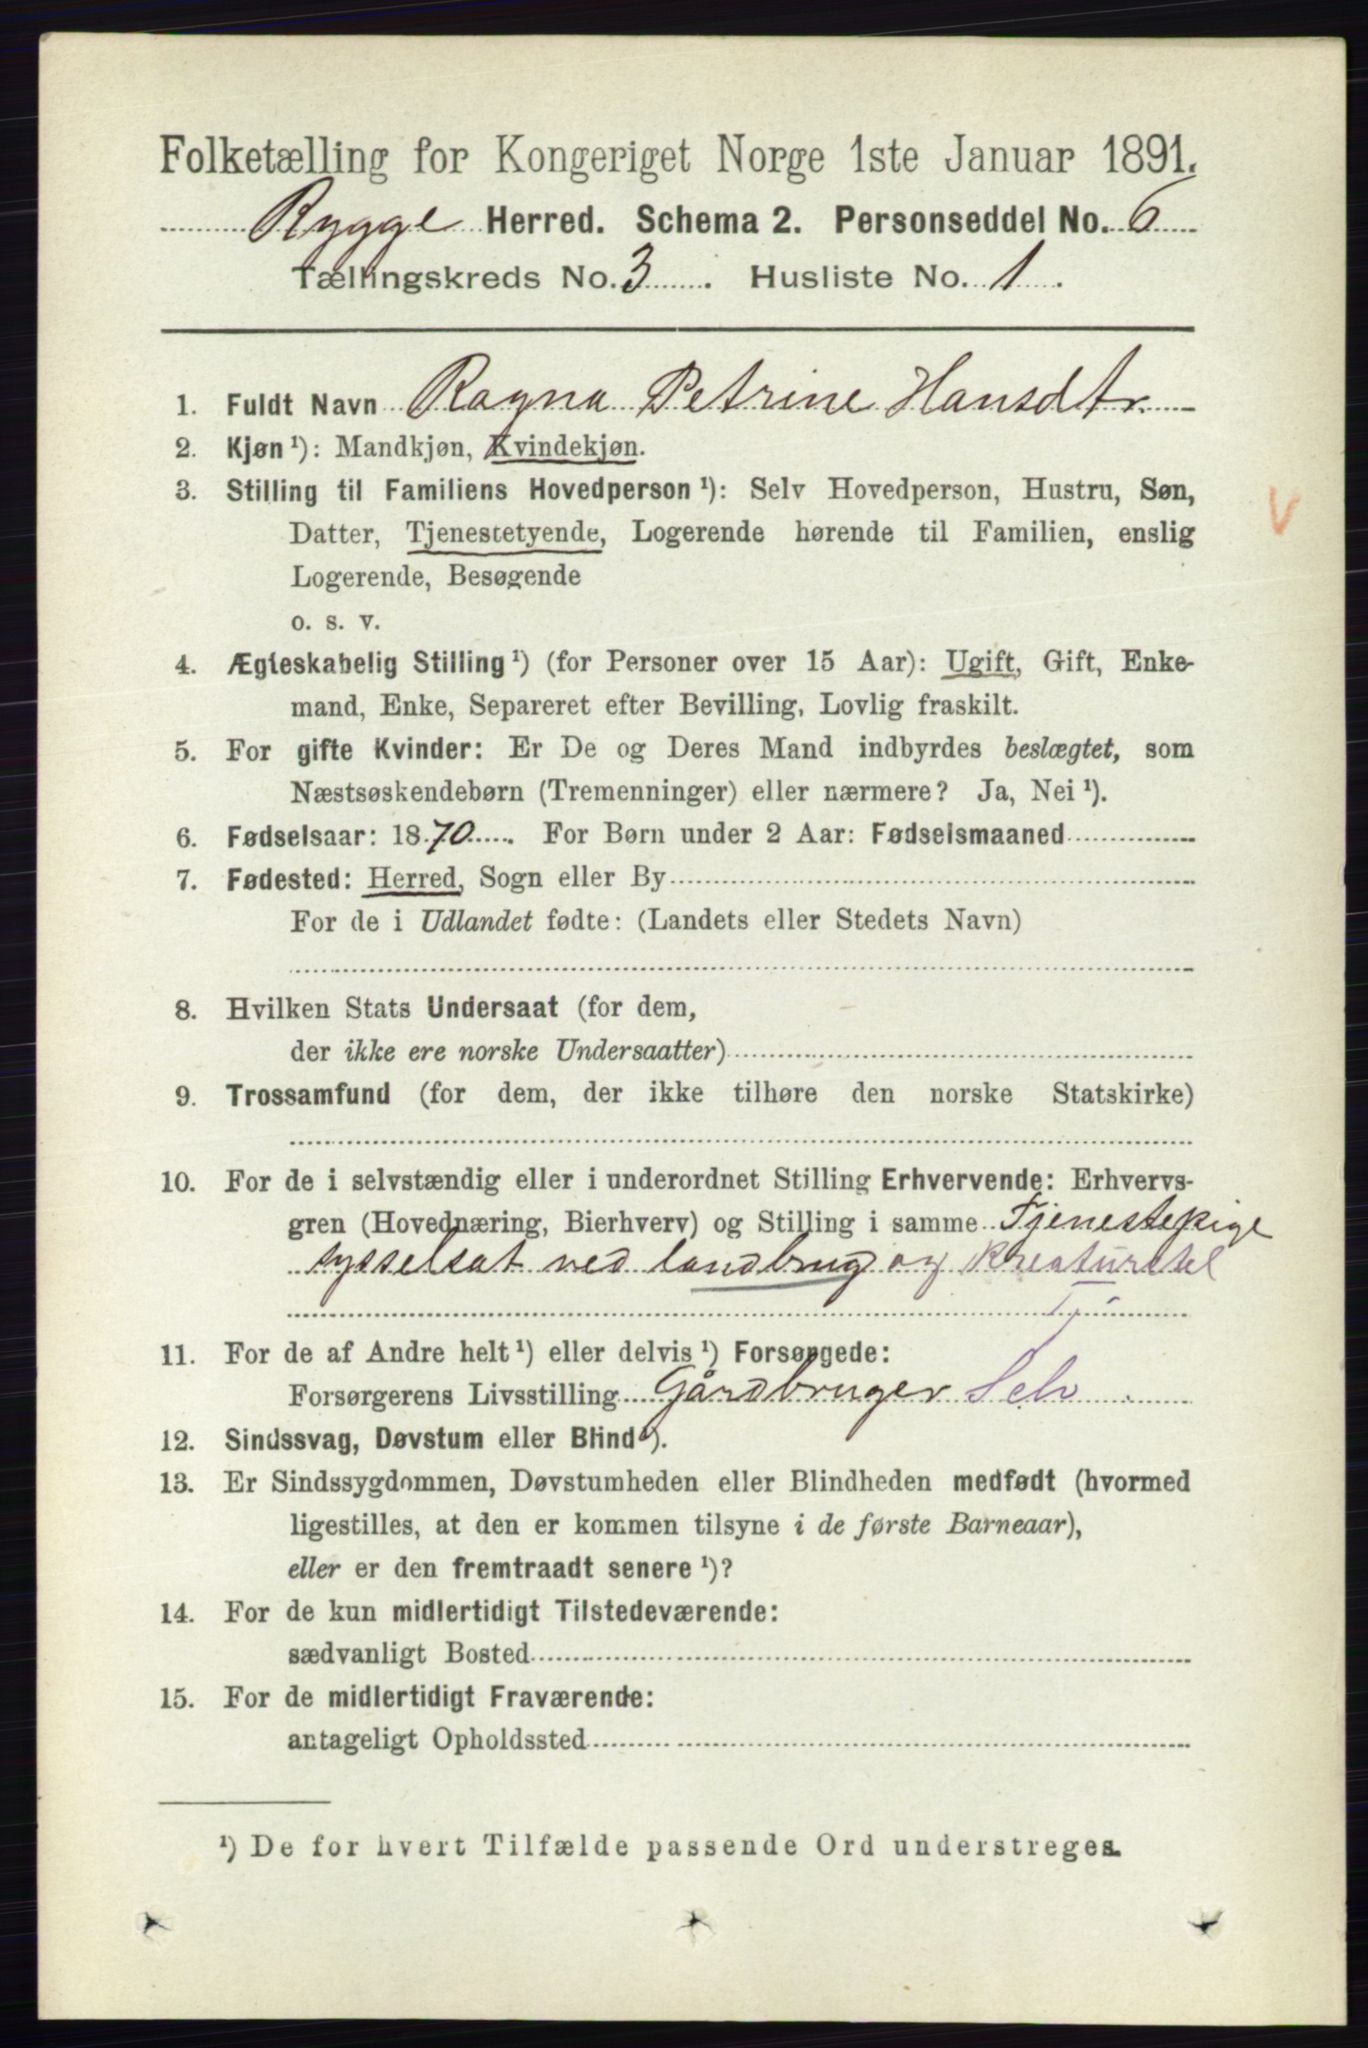 Folketælling for Kongeriget Norge 1ste Januar 1891.
Rygge Herred. Schema 2. Personseddel No. 6
Tællingskreds No. 3. Husliste No. 1.
1. Fuldt Navn Ragna Petrine Hansdtr.
2. Kjøn ¹): Mandkjøn, Kvindekjøn.
3. Stilling til Familiens Hovedperson ¹): Selv Hovedperson, Hustru, Søn,
Datter, Tjenestetyende, Logerende hørende til Familien, enslig
Logerende, Besøgende
o. s. v.
4. Ægteskabelig Stilling ¹) (for Personer over 15 Aar): Ugift, Gift, Enke-
mand, Enke, Separeret efter Bevilling, Lovlig fraskilt.
5. For gifte Kvinder: Er De og Deres Mand indbyrdes beslægtet, som
Næstsøskendebørn (Tremenninger) eller nærmere? Ja, Nei ¹).
6. Fødselsaar: 1870. For Børn under 2 Aar: Fødselsmaaned
7. Fødested: Herred, Sogn eller By
For de i Udlandet fødte: (Landets eller Stedets Navn)
8. Hvilken Stats Undersaat (for dem,
der ikke ere norske Undersaatter)
9. Trossamfund (for dem, der ikke tilhøre den norske Statskirke)
10. For de i selvstændig eller i underordnet Stilling Erhvervende: Erhvervs-
gren (Hovednæring, Bierhverv) og Stilling i samme Tjenestepige
sysselsat ved landbrug og Kreaturstel
Tj.
11. For de af Andre helt ¹) eller delvis ¹) Forsørgede:
Forsørgerens Livsstilling Gårdbruger Selv.
12. Sindssvag, Døvstum eller Blind ¹).
13. Er Sindssygdommen, Døvstumheden eller Blindheden medfødt (hvormed
ligestilles, at den er kommen tilsyne i de første Barneaar),
eller er den fremtraadt senere ¹)?
14. For de kun midlertidigt Tilstedeværende:
sædvanligt Bosted
15. For de midlertidigt Fraværende:
antageligt Opholdssted
¹) De for hvert Tilfælde passende Ord understreges.